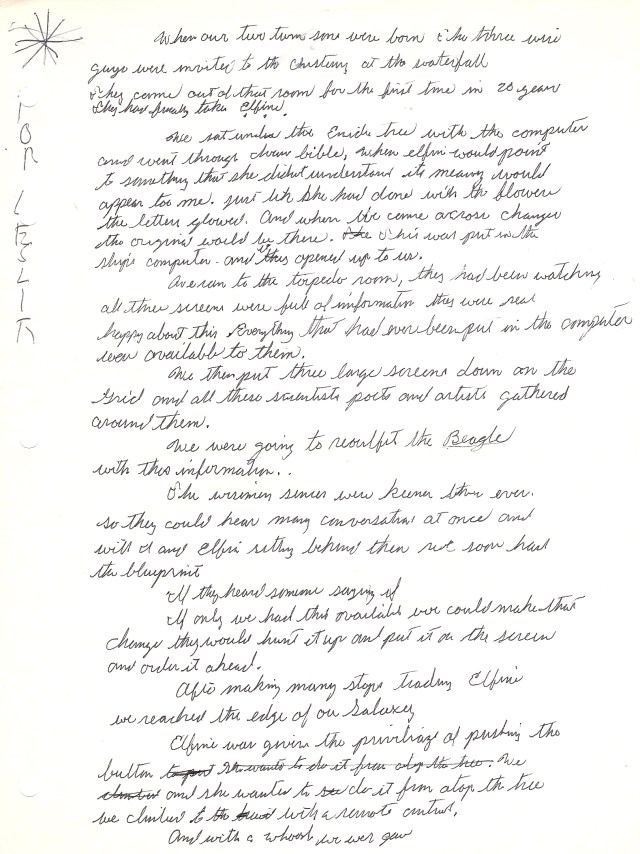 TOM LESLIE
When our two twin sons were born the three wise
guys were invited to the christing at the waterfall
They came out of that room for the first time in 20 years
They had finally take Elfini.
We sat under the tree with the computer
and went through bible, when elfini would point
to something that she didnt understand its meaning would
appear too me. just like she had done with the blowers
the letters glowed. And when we came across changes
the original would be there. This was put in the
ships computer. and this opened up to us.
We ran to the torpedo room, they had been watching
all three screens were full of information they were real
happy about this Everything that had ever been put in the computer
was available to them.
We then put three large screens down on the
Grid and all these scientists poets and artists gathered
around them.
We were going to reoutfit the Beagle
with this information..
The senses were keener then ever.
so they could hear many conversations at once and
with I and Elfini sitting behind them we soon had
the blueprint
If they heard someone saying if
If only we had this available we could make that
change they would hunt it up and put it on the screen
and order it ahead.
After making many stops trading Elfini
we reached the edge of our Galaxey
Elfini was given the privilege of pushing the
button to She wants to do it from atop the tree. We
and she wanted to do it from atop the tree
we climbed to the with a remote control.
And with a whoosh we wer gon